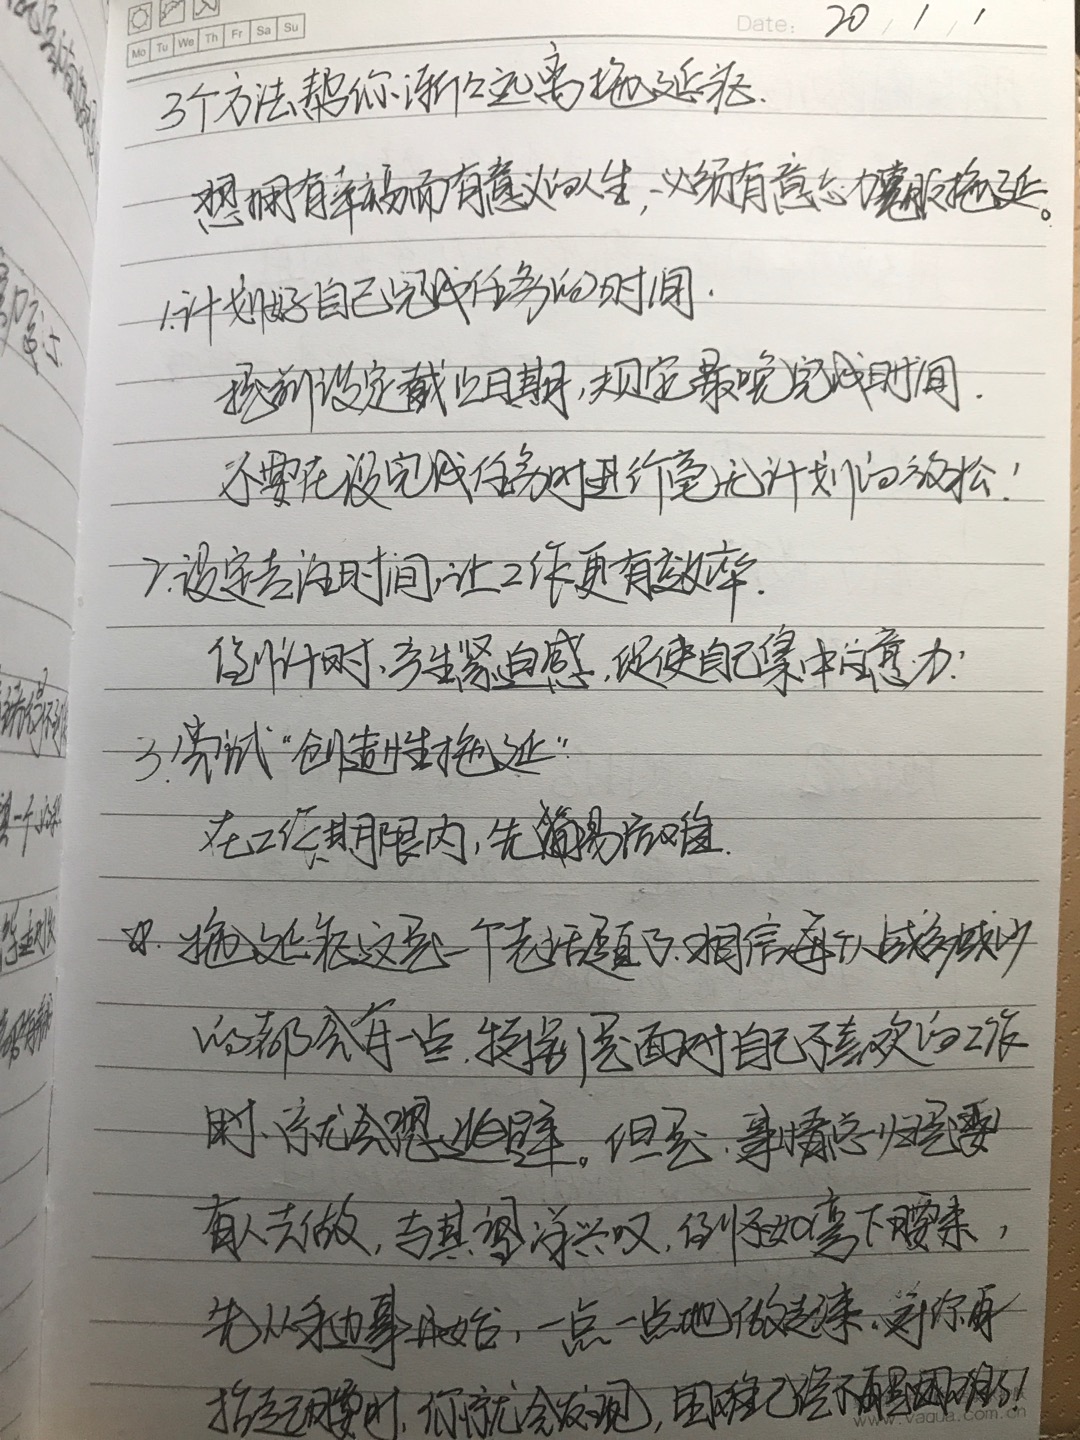 Mo Tu We Th Fr Sa Su
Date: 20 / 1 / 1
3个方法帮你渐渐远离拖延症.
想拥有幸福而有意义的人生,必须有意志力克服拖延。
1.计划好自己完成任务的时间.
提前设定截止日期,规定最晚完成时间.
不要在没完成任务时进行毫无计划的放松!
2.设定专注时间,让工作更有效率.
倒计时,产生紧迫感,促使自己集中注意力.
3.尝试“创造性拖延”
在工作期限内,先简易后难.
拖延症这是一个老话题了.相信每个人或多或少
的都会有一点.特别是面对自己不喜欢的工作
时,你就会想逃避。但是,事情总归是要
有人去做,与其望洋兴叹,倒不如弯下腰来,
先从身边事开始,一点一点地做起来,等你再
抬起头时,你就会发现,困难已经不再是困难了!
www.yaqua.com.cn